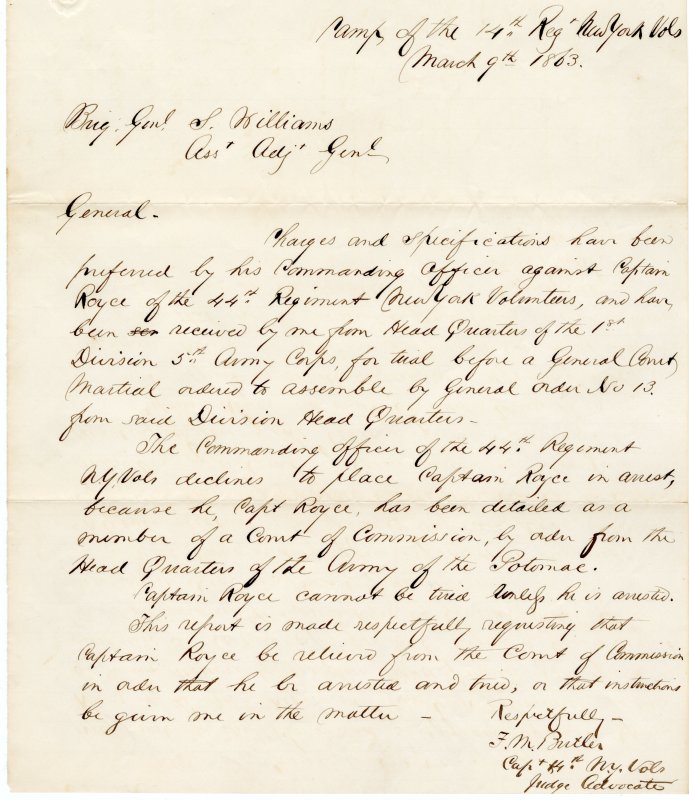 Camp, of the 14th Regt New York Vols
March 9th 1863.
Brig. Genl. S. Williams
Asst Adjt Genl
General -
Charges and Specifications have been
preferred by his Commanding Officer against Captain
Royce of the 44th Regiment New York Volunteers, and have
been received by me from Head Quarters of the 1st
Division 5th Army Corps, for trial before a General Court
Martial ordered to assemble by General order No 13.
from said Division Head Quarters -
The Commanding Officer of the 44th Regiment
N.Y. Vols declines to place Captain Royce in arrest,
because he, Capt Royce, has been detailed as a
member of a Court of Commission, by order from the
Head Quarters of the Army of the Potomac.
Captain Royce cannot be tried unless he is arrested.
This report is made respectfully requesting that
Captain Royce be relieved from the Court of Commission
in order that he be arrested and tried, or that instructions
be given me in the matter -
Respectfully -
F. M. Butler
Capt 14th N.Y. Vols
Judge Advocate